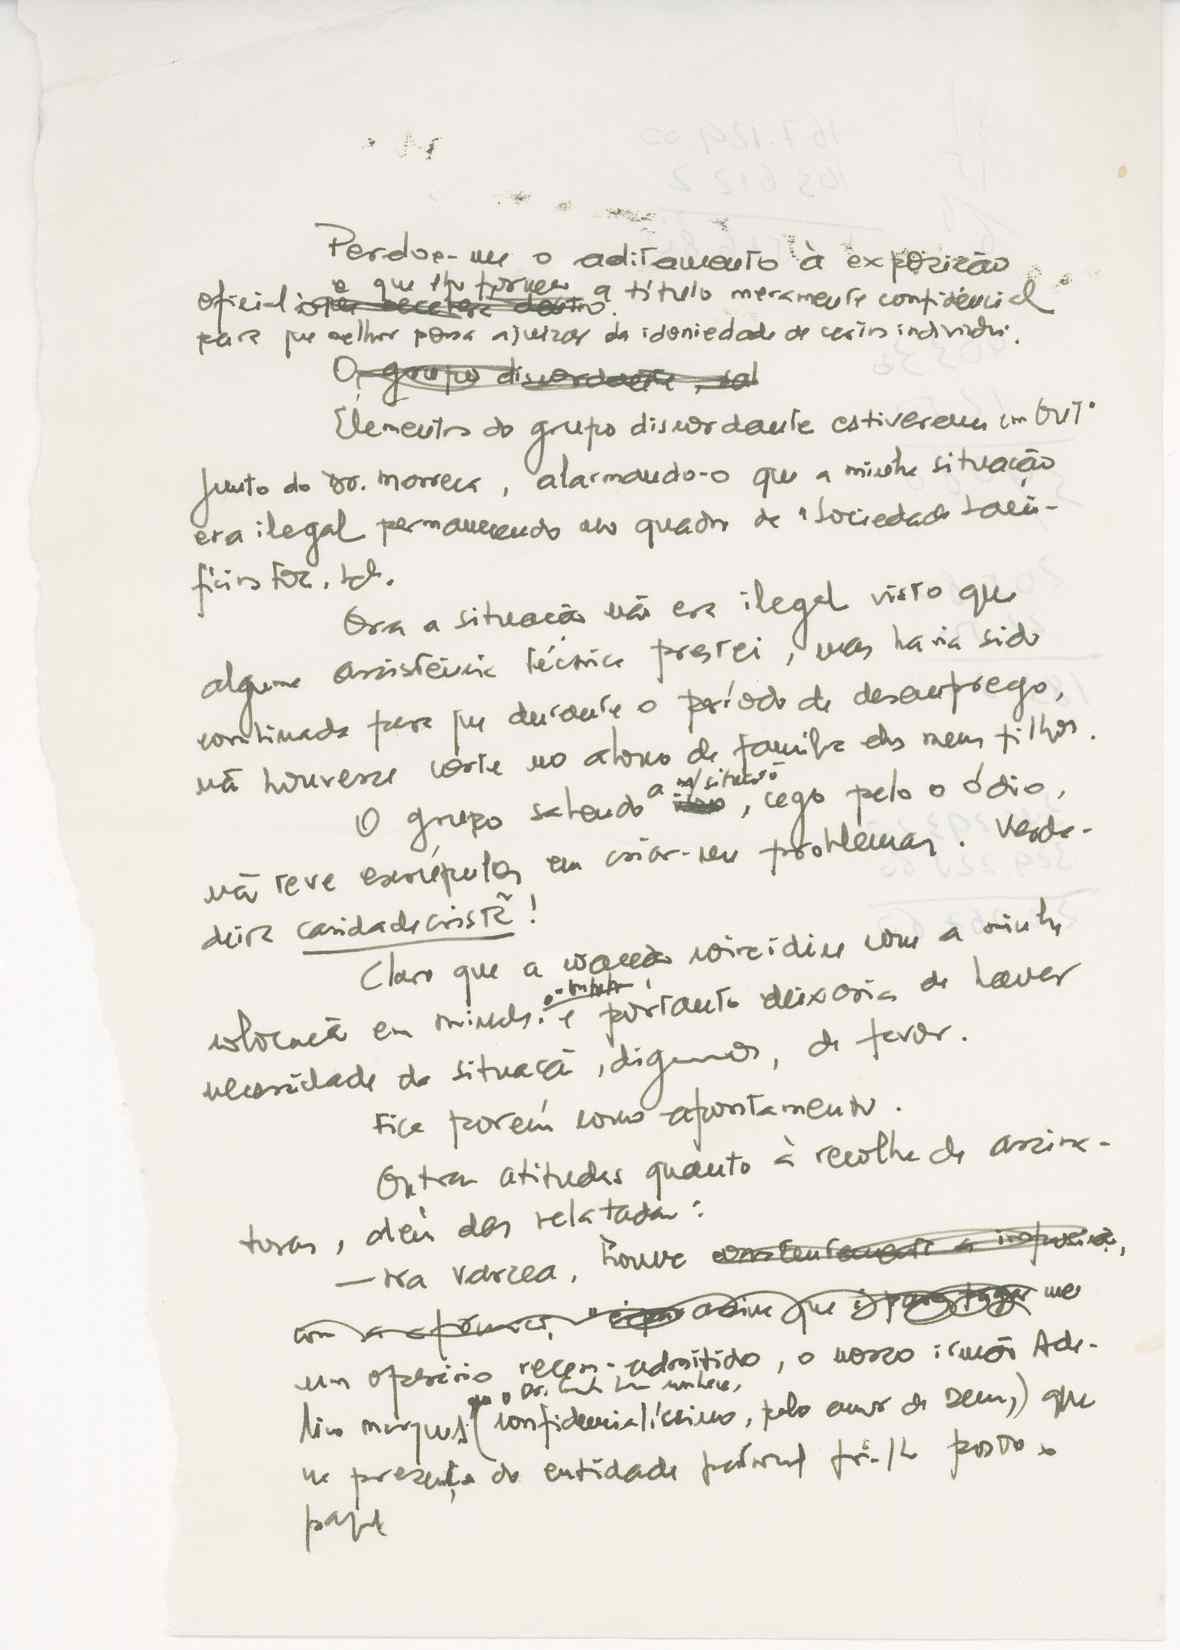 Perdoe-me o aditamento à exposição
oficial e que lhe forneço a título meramente confidencial
para que melhor possa ajuizar da idoneidade de certos indivíduos.
O grupo discordante, sal
Elementos do grupo discordante estiveram em Out.
junto do Dr. Morrera, alarmando-o que a minha situação
era ilegal permanecendo no quadro de "Sociedade
Ora a situação não era ilegal visto que
alguma assistência técnica prestei, mas havia sido
combinado para que durante o período de desemprego,
não houvesse corte no abono de família dos meus filhos.
O grupo sabendo a m/ situação, cego pelo o ódio,
não teve escrúpulos em criar-me problemas. Verda-
deira caridade cristã!
Claro que a coincidiu com a minha
colocação em e portanto deixaria de haver
necessidade da situação, digamos, de favor.
Fica porém como apontamento.
Outras atitudes quanto à recolha de assina-
turas, além das relatadas:
— Na Varzea, houve
com a que para pagar
um operário recem-admitido, o nosso irmão Ade-
lino Marques (confidencialíssimo, pelo amor de Deus,) que
na presença da entidade patronal foi-lhe posto o
papel